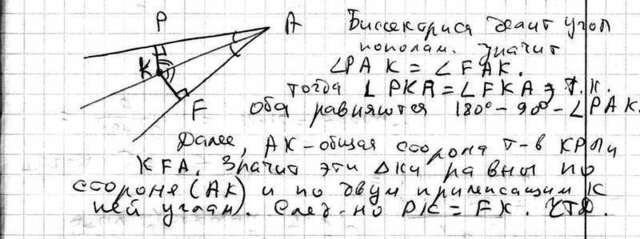 P
A
K
F
Биссектриса делит угол
пополам. Значит
∠PAK = ∠FAK.
тогда ∠PKA = ∠FKA, т.к.
оба равняются 180°-90°-∠PAK.
Далее, AK-общая сторона т-в KPA и
KFA. Значит эти Δки равны по
стороне (AK) и по двум прилежащим к
ней углам. След-но PK = FK. ЧТД.